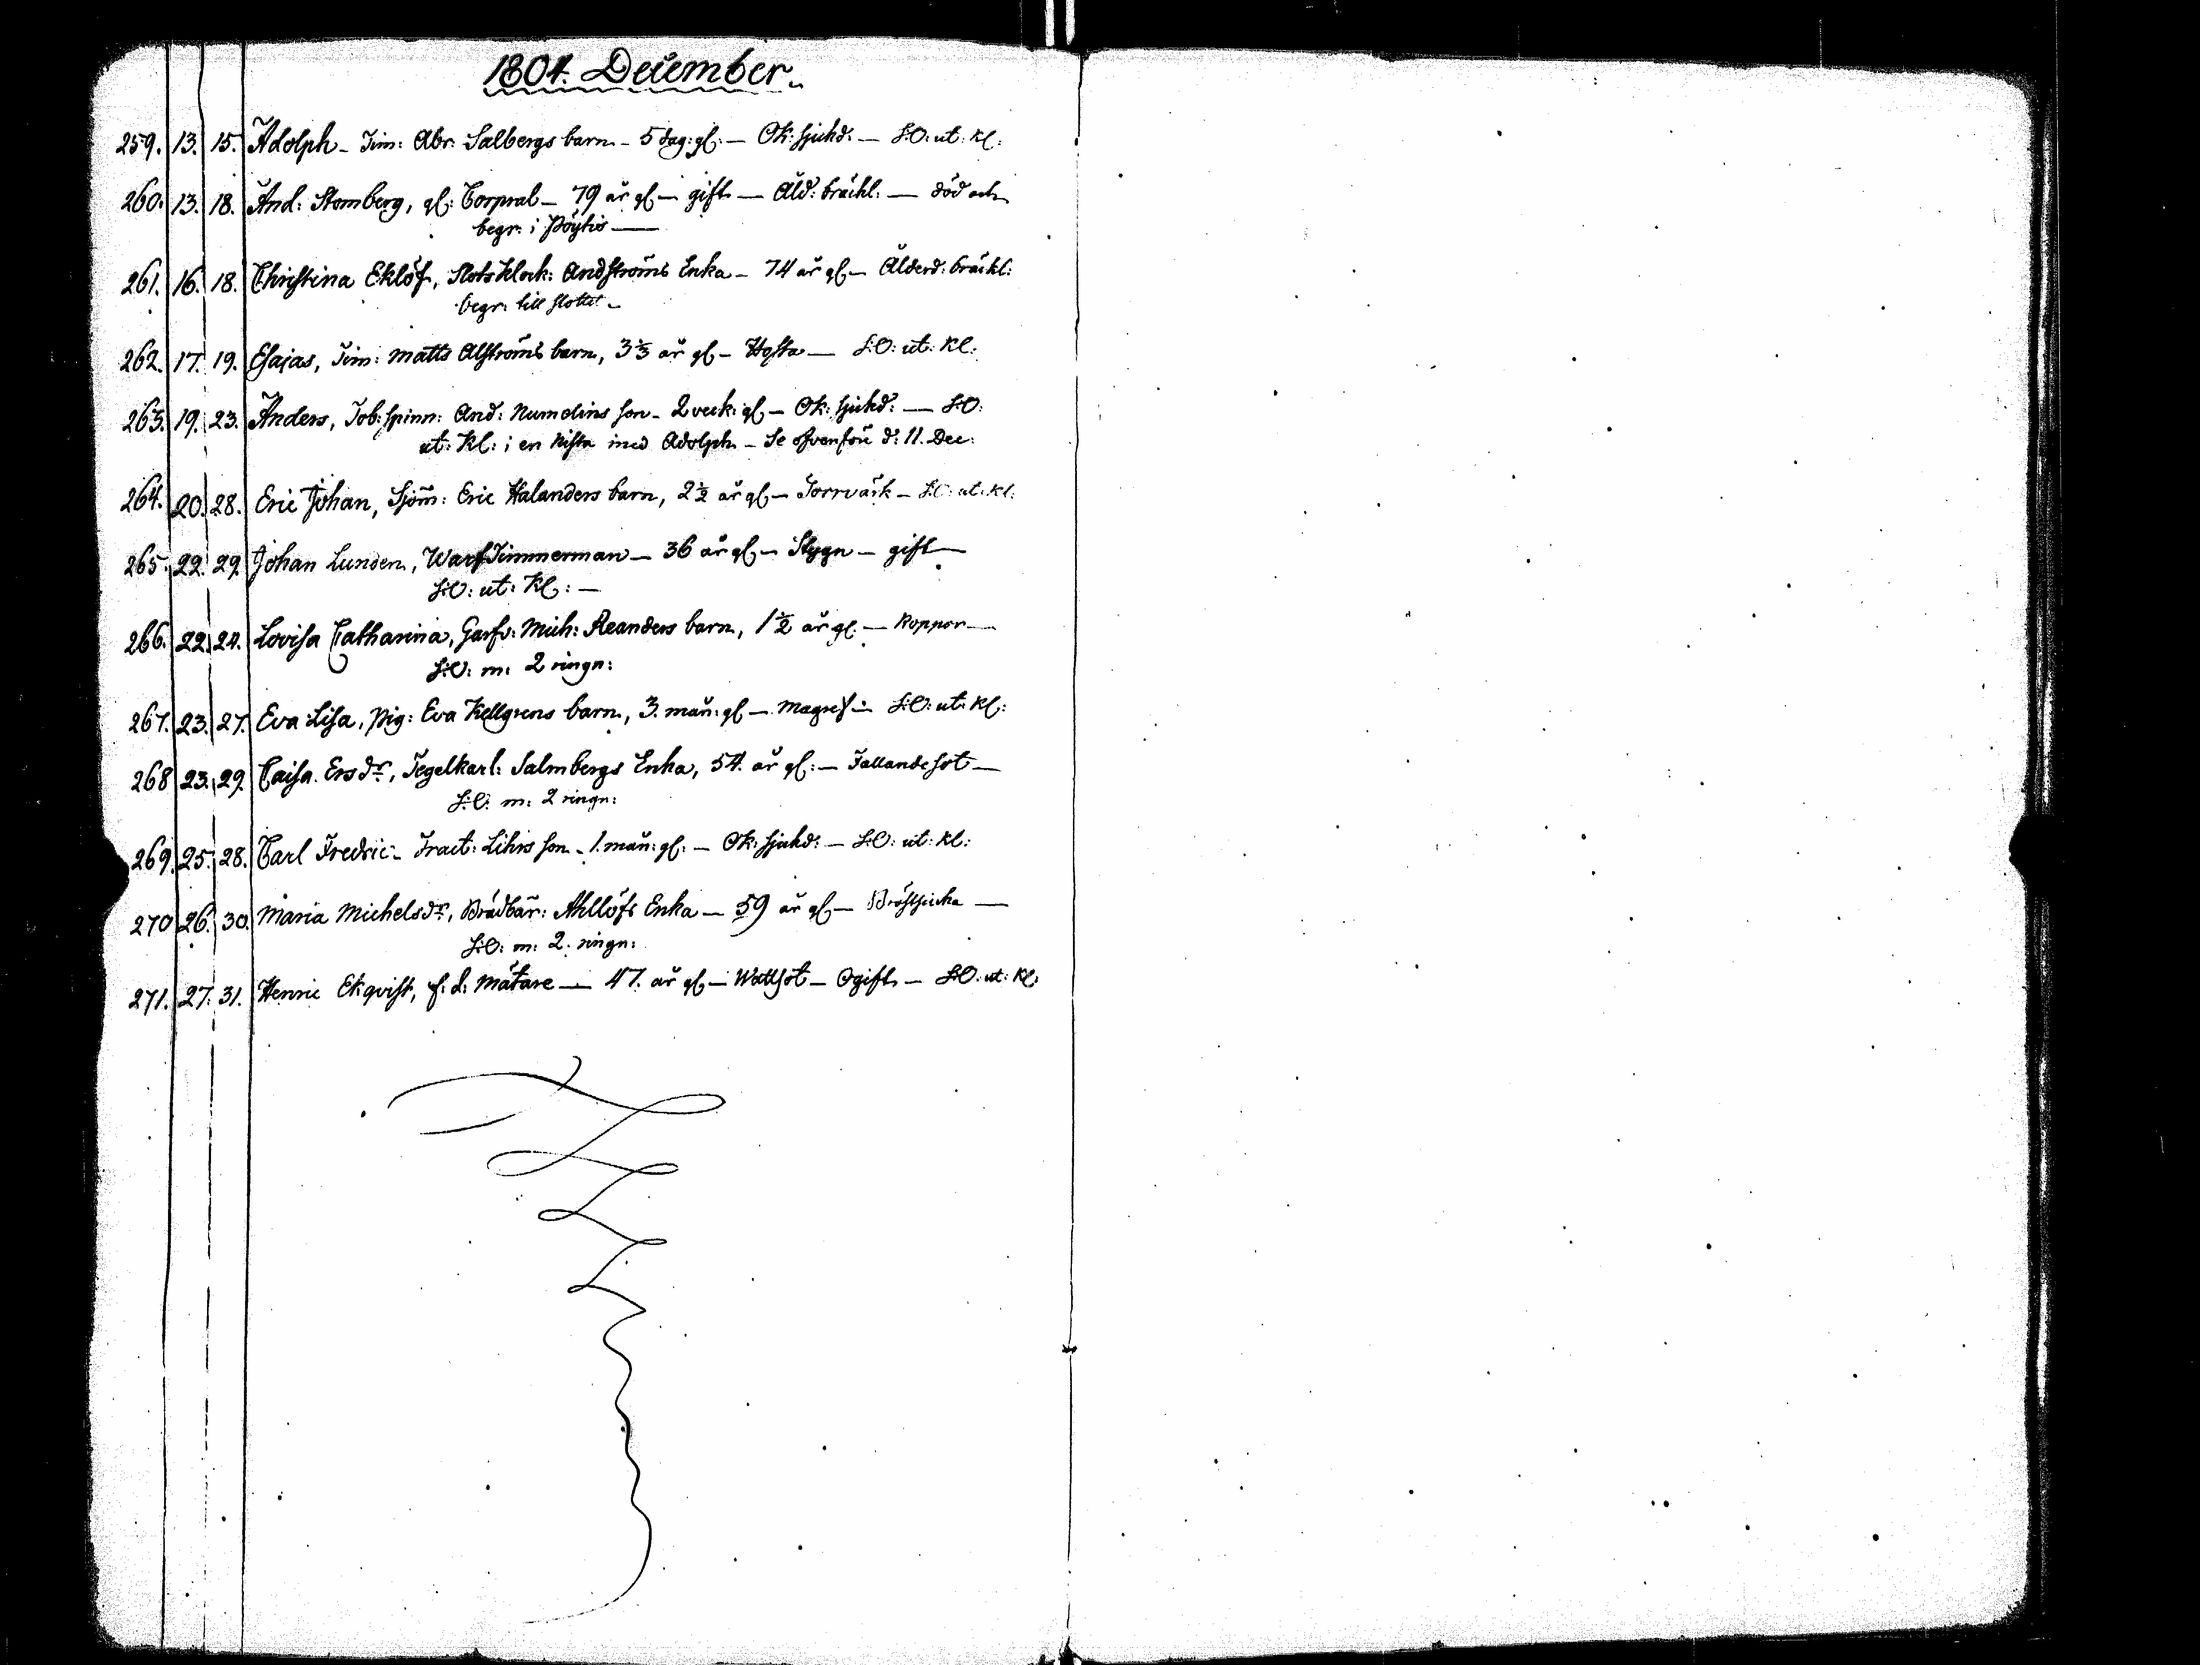 1804. December.
259. 13. 15. Adolph - Tim: Abr: Salbergs barn - 5 dag: gl: — Ok: sjukd: — S:O: ut: Kl:
260. 13. 18. And: Stomberg, gl: Corporal — 79 år gl — gift — Åld: bräckl: — död och
begr: i Pöytis —
261. 16. 18. Christina Eklöf, Slots Klock: Andströms Enka — 74 år gl — Ålderd: bräckl:
begr: till slottet —
262. 17. 19. Esajas, Tim: Matts Alströms barn, 3⅓ år gl — Hosta — S:O: ut: Kl:
263. 19. 23. Anders, Tob: spinn: And: Numelins son - 2 veck: gl — Ok: sjukd: — S:O:
ut: Kl: i en kista med Adolph — Se ofvanföre d: 11. Dec:
264. 20. 28. Eric Johan, Sjöm: Eric Halanders barn, 2½ år gl — Torrvärk — S:O: ut: Kl:
265. 22. 29. Johan Lunden, Warf Timmerman — 36 år gl — Stygn — gift —
S:O: ut: Kl: —
266. 22. 24. Lovisa Catharina, Garfv: Mich: Reanders barn, 1½ år gl: — Koppor —
S:O: m: 2 ringn:
267. 23. 27. Eva Lisa, pig: Eva Kellgrens barn, 3. mån: gl — S:O: ut: Kl:
268 23. 29. Caisa Ersdr, Tegelkarl: Salmbergs Enka, 54. år gl: — Fallandesot —
S:O: m: 2 ringn:
269. 25. 28. Carl Fredric - Tract: Lihrs son - 1. mån: gl: — Ok: sjukd: — S:O: ut: Kl:
270 26. 30. Maria Michelsdr, Brädbär: Ahllöfs Enka — 59 år gl — Bröstsiuka —
S:O: m: 2. ringn:
271. 27. 31. Henric Ekqvist, f: d: Mätare — 47. år gl — Wattsot — Ogift — S:O: ut: Kl: